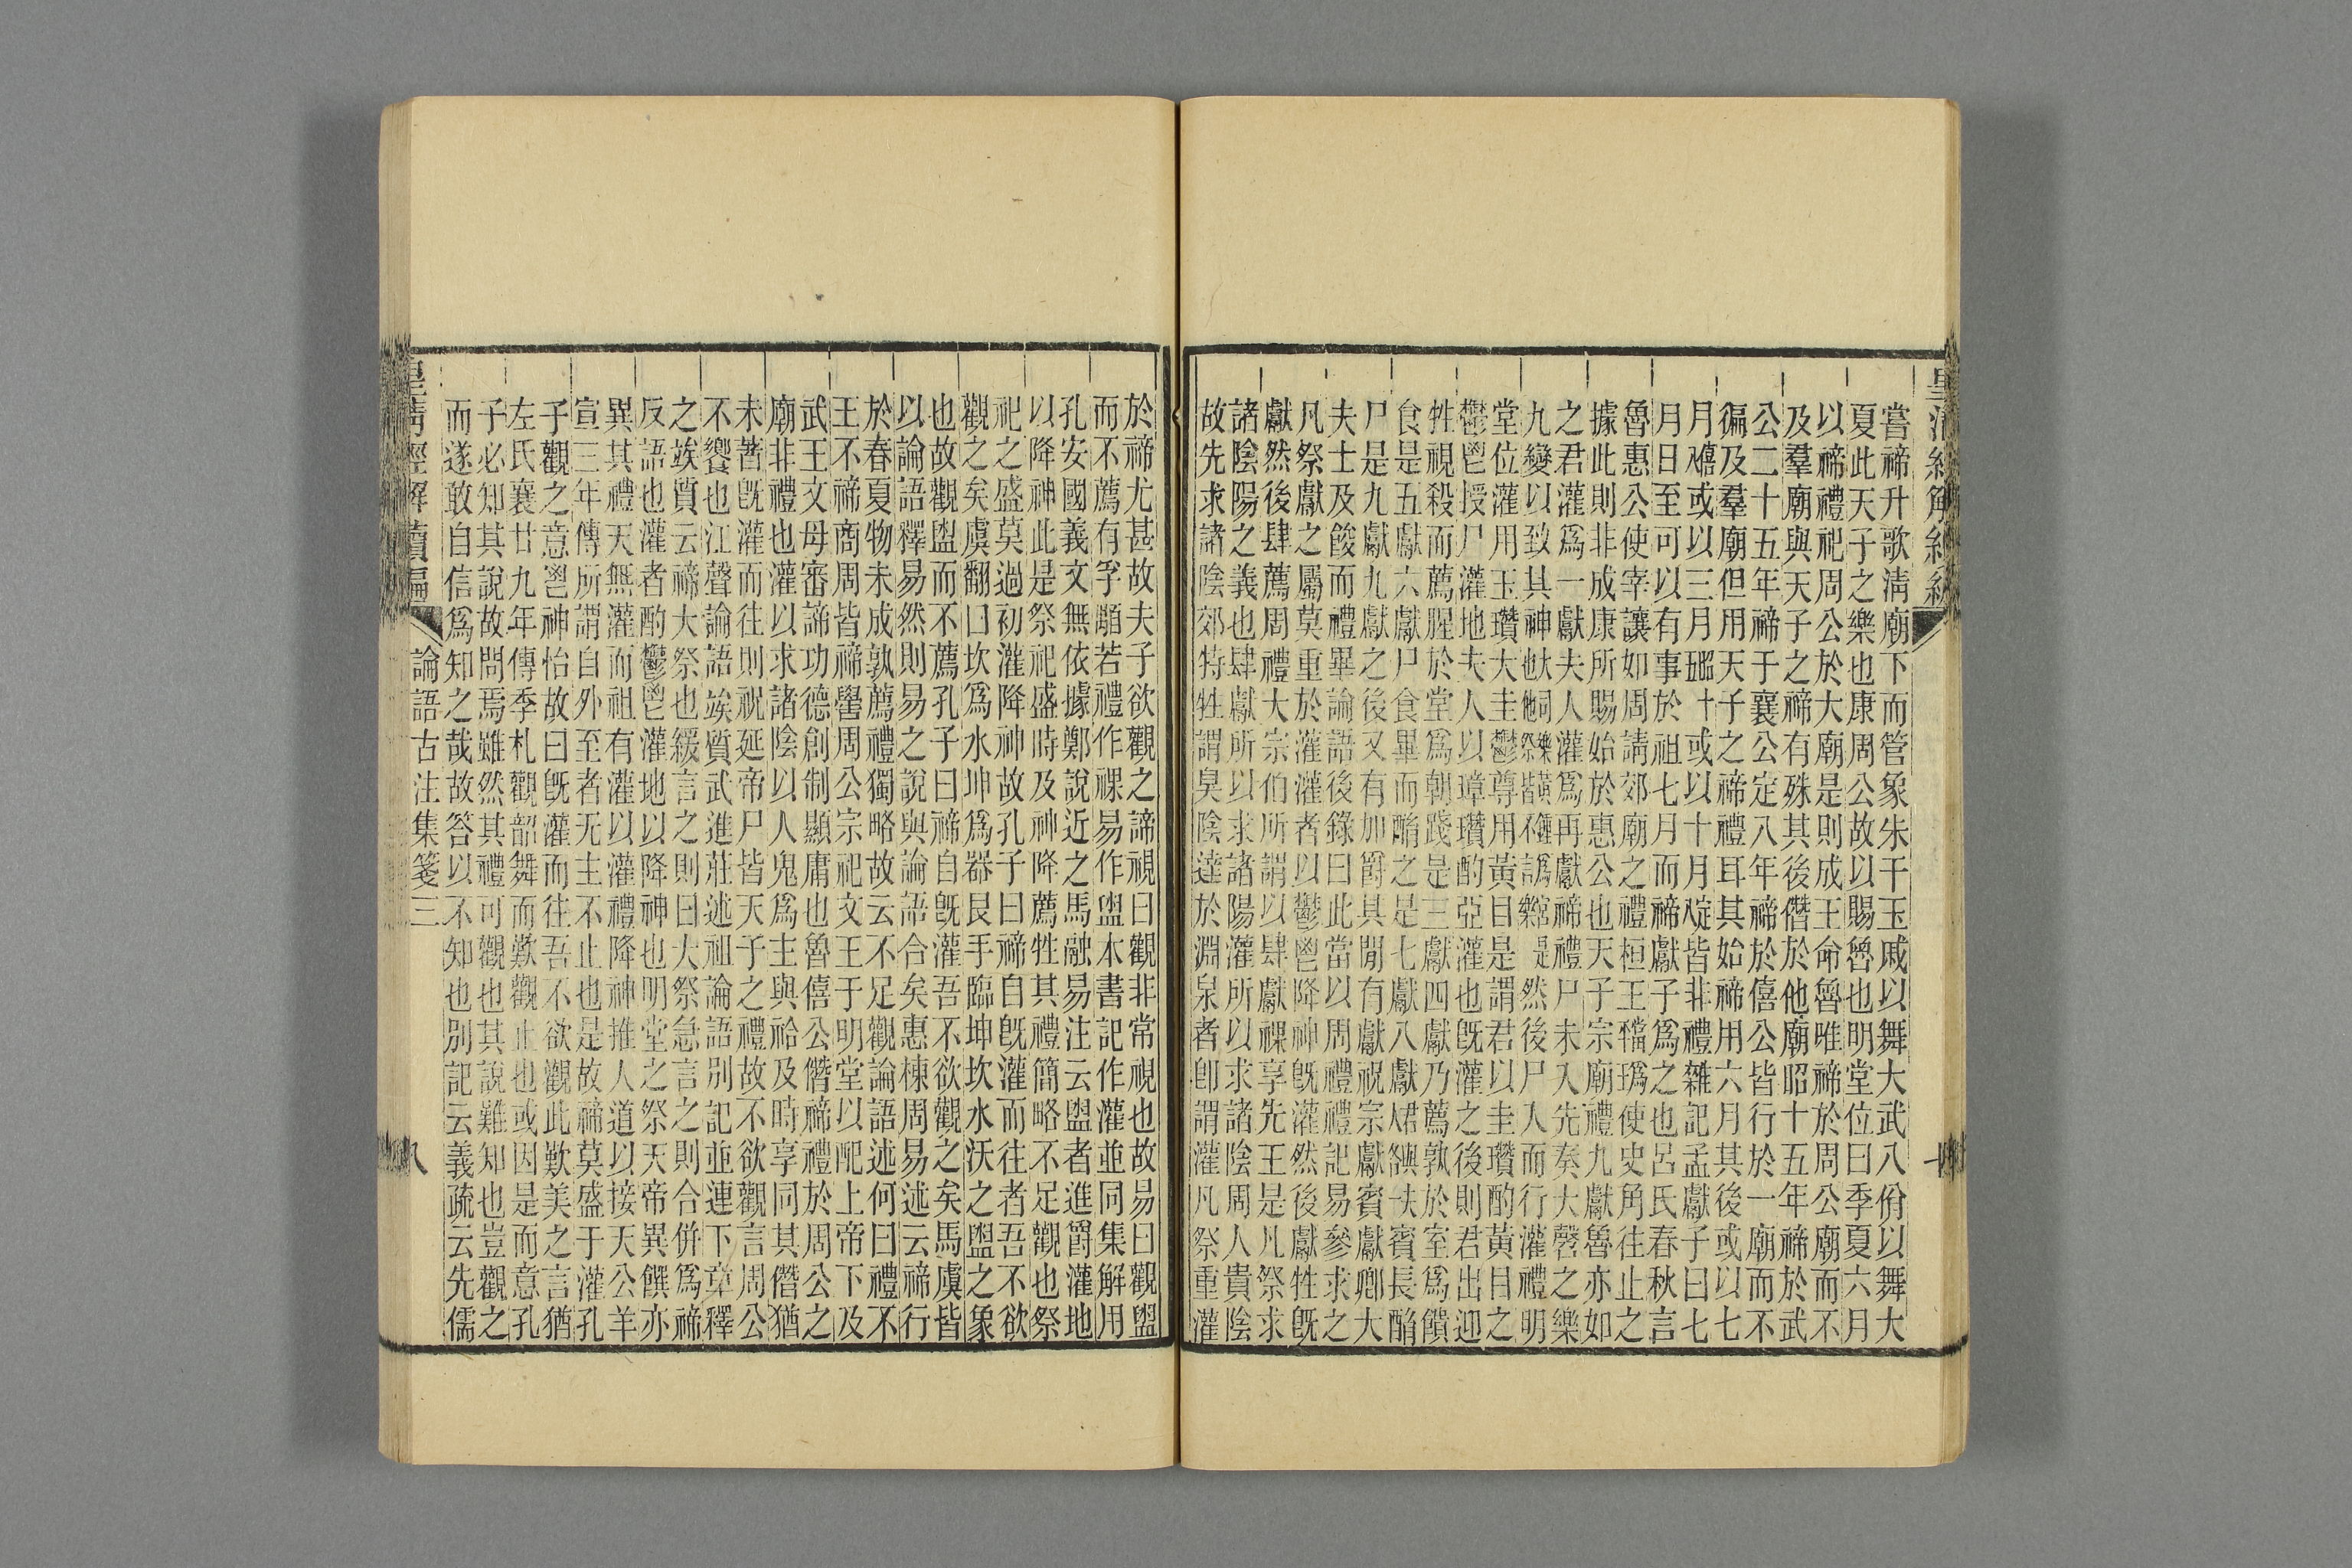 嘗禘升歌淸廟下而管象朱干玉戚以舞大武八佾以舞大
夏此天子之樂也康周公故以賜魯也明堂位曰季夏六月
以禘禮祀周公於大廟是則成王命魯唯禘於周公廟而不
及羣廟與天子之禘有殊其後僭於他廟昭十五年禘於武
公二十五年禘于襄公定八年禘於僖公皆行於一廟而不
徧及羣廟但用天子之禘禮耳其始禘用六月其後或以七
月或以三月或以十月皆非禮雜記孟獻子曰七
月日至可以有事於祖七月而禘獻子爲之也呂氏春秋言
魯惠公使宰讓如周請郊廟之禮桓王使史角往止之
據此則非成康所賜始於惠公也天子宗廟禮九獻魯亦如
之君灌爲一獻夫人灌爲再獻禘禮尸未入先奏大磬之樂
九變以致其神然後尸入而行灌禮明
堂位灌用玉瓚大圭鬱尊用黃目是謂君以圭瓚酌黃目之
鬱鬯授尸灌地夫人以璋瓚酌亞灌也旣灌之後則君出迎
牲視殺而薦腥於堂爲朝踐是三獻四獻乃薦孰於室爲饋
食是五獻六獻尸食畢而酳之是七獻八獻賓長酳
尸是九獻九獻之後又有加爵其閒有獻祝宗獻賓獻卿大
夫士及餕而禮畢論語後錄曰此當以周禮禮記易參求之
凡祭獻之屬莫重於灌灌者以鬱鬯降神旣灌然後獻牲旣
獻然後肆薦周禮大宗伯所謂以肆獻祼享先王是凡祭求
諸陰陽之義也肆獻所以求諸陽灌所以求諸陰周人貴陰
故先求諸陰郊特牲謂臭陰達於淵泉者卽謂灌凡祭重灌
於禘尤甚故夫子欲觀之諦視曰觀非常視也故易曰觀盥
而不薦有孚顒若禮作祼易作盥本書記作灌並同集解用
孔安國義文無依據鄭說近之馬融易注云盥者進爵灌地
以降神此是祭祀盛時及神降薦牲其禮簡略不足觀也祭
祀之盛莫過初灌降神故孔子曰禘自旣灌而往者吾不欲
觀之矣虞翻曰坎爲水坤爲器艮手臨坤坎水沃之盥之象
也故觀盥而不薦孔子曰禘自旣灌吾不欲觀之矣馬虞皆
以論語釋易然則易之說與論語合矣惠棟周易述云禘行
於春夏物未成孰薦禮獨略故云不足觀論語述何曰禮不
王不禘商周皆禘嚳周公宗祀文王于明堂以配上帝下及
武王文母審諦功德創制顯庸也魯僖公僭禘禮於周公之
廟非禮也灌以求諸陰以人鬼爲主與祫及時享同其僭猶
未著旣灌而往則祝延帝尸皆天子之禮故不欲觀言周公
不饗也江聲論語竢質武進莊述祖論語別記並連下章釋
之竢質云禘大祭也緩言之則曰大祭急言之則合併爲禘
反語也灌者酌鬱鬯灌地以降神也明堂之祭天帝異饌亦
異其禮天無灌而祖有灌以灌禮降神推人道以接天公羊
宣三年傳所謂自外至者无主不止也是故禘莫盛于灌孔
子觀之意鬯神怡故曰旣灌而往吾不欲觀此歎美之言猶
左氏襄廿九年傳季札觀韶舞而歎觀止也或因是而意孔
子必知其說故問焉雖然其禮可觀也其說難知也豈觀之
而遂敢自信爲知之哉故答以不知也別記云義疏云先儒
論語古注集箋三
八